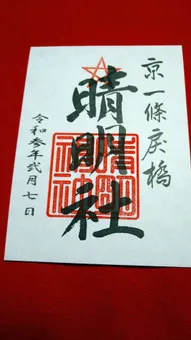 京一條戻橋
晴明社
令和参年弐月七日